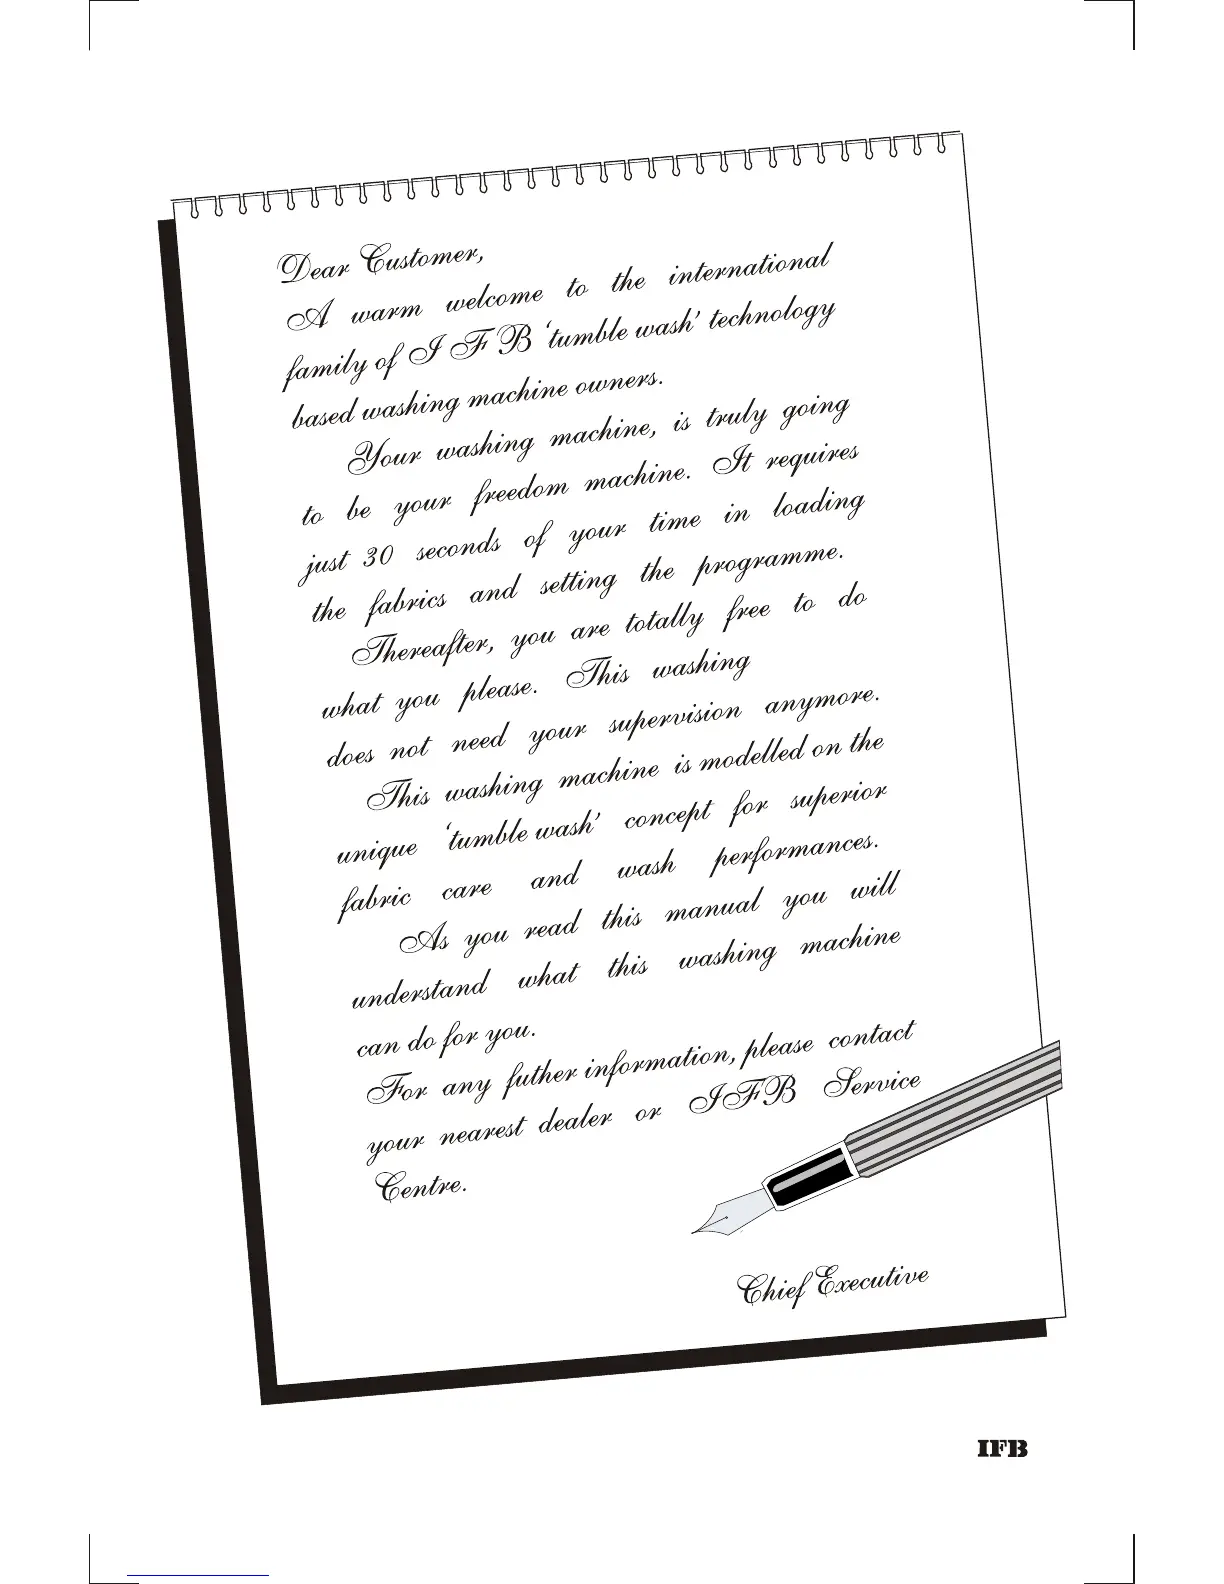 Dear Customer,
A warm welcome to the international
family of I F B 'tumble wash' technology
based washing machine owners.
Your washing machine, is truly going
to be your freedom machine. It requires
just 30 seconds of your time in loading
the fabrics and setting the programme.
Thereafter, you are totally free to do
what you please. This washing
does not need your supervision anymore.
This washing machine is modelled on the
unique 'tumble wash' concept for superior
fabric care and wash performances.
As you read this manual you will
understand what this washing machine
can do for you.
For any futher information, please contact
your nearest dealer or IFB Service
Centre.
Chief Executive
IFB